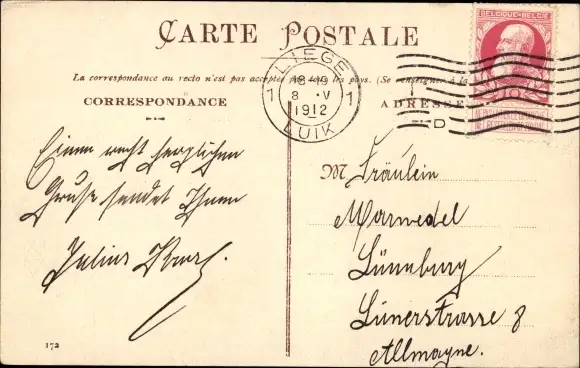 CARTE POSTALE
La correspondance au recto n'est pas acceptée par tous les pays. (Se renseigner à la
CORRESPONDANCE
ADRESSE
LIEGE
1 18-19 1
8 · V
1912
LUIK
D
BELGIQUE·BELGIË
10
Einen recht herzlichen
Gruss sendet Ihnen
Julius
M Fräulein
Marwedel
Lünnburg
Lünerstrasse 8
Allmagne.
172